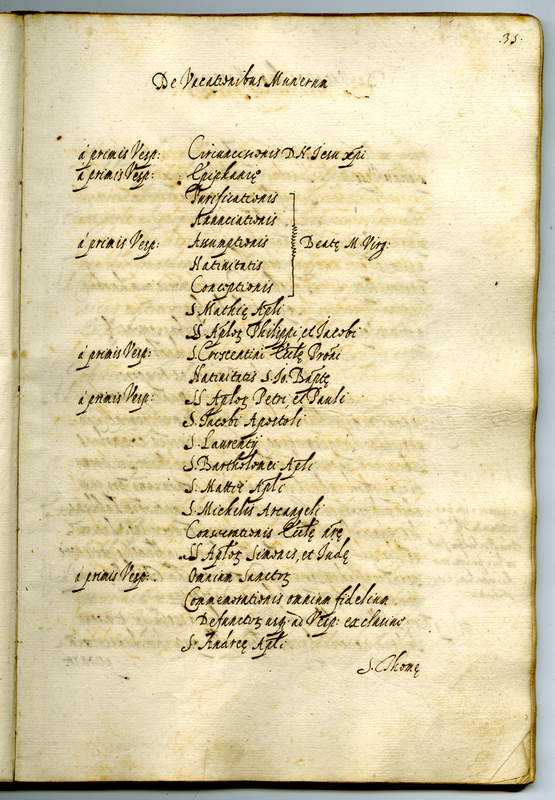 .35.
De Vacationibus Munerum
á primis Vesp: Circuncisionis D. N. Jesu xpi
á primis Vesp: Epiphanię
Purificationis
Anunciationis
á primis Vesp: Assumptionis Beatę M. Virg:
Natiuitatis
Conceptionis
S. Mathię Apli
SS Aplor̃ Philippi, et Jacobi
á primis Vesp: S. Crescentini Eccłę Proñi
Natiuitatis S. Jo. Baptę
á primis Vesp: SS Aplor̃ Petri, et Pauli
S. Jacobi Apostoli
S. Laurentij
S. Bartholomei Apli
S. Mattęi Apli
S. Michelis Arcangeli
Consecrationis Eccłę nrę
SS Aplor̃ Simonis, et Judę
á primis Vesp: Omnium Sanctor̃
Commemorationis omnium fidelium
Defunctor̃ usq; ad Vesp: exclusiue
S. Andreę Apli
S. Thomę